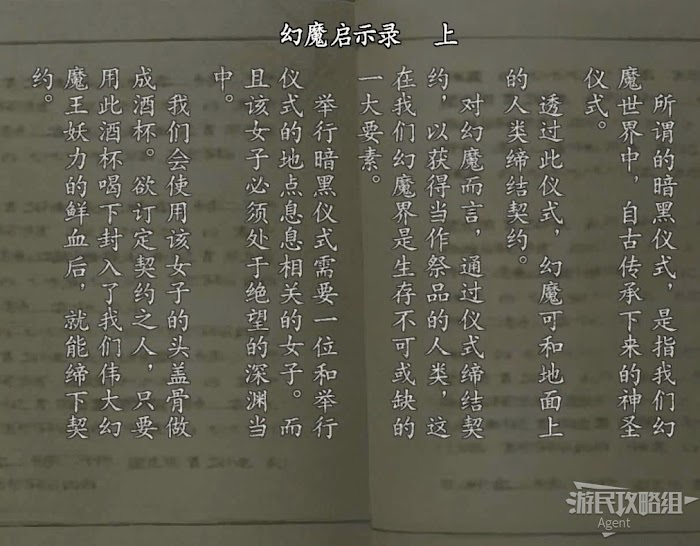 幻魔启示录 上
所谓的暗黑仪式，是指我们幻
魔世界中，自古传承下来的神圣
仪式。
透过此仪式，幻魔可和地面上
的人类缔结契约。
对幻魔而言，通过仪式缔结契
约，以获得当作祭品的人类，这
在我们幻魔界是生存不可或缺的
一大要素。
举行暗黑仪式需要一位和举行
仪式的地点息息相关的女子。而
且该女子必须处于绝望的深渊当
中。
我们会使用该女子的头盖骨做
成酒杯。欲订定契约之人，只要
用此酒杯喝下封入了我们伟大幻
魔王妖力的鲜血后，就能缔下契
约。
游民攻略组
Agent